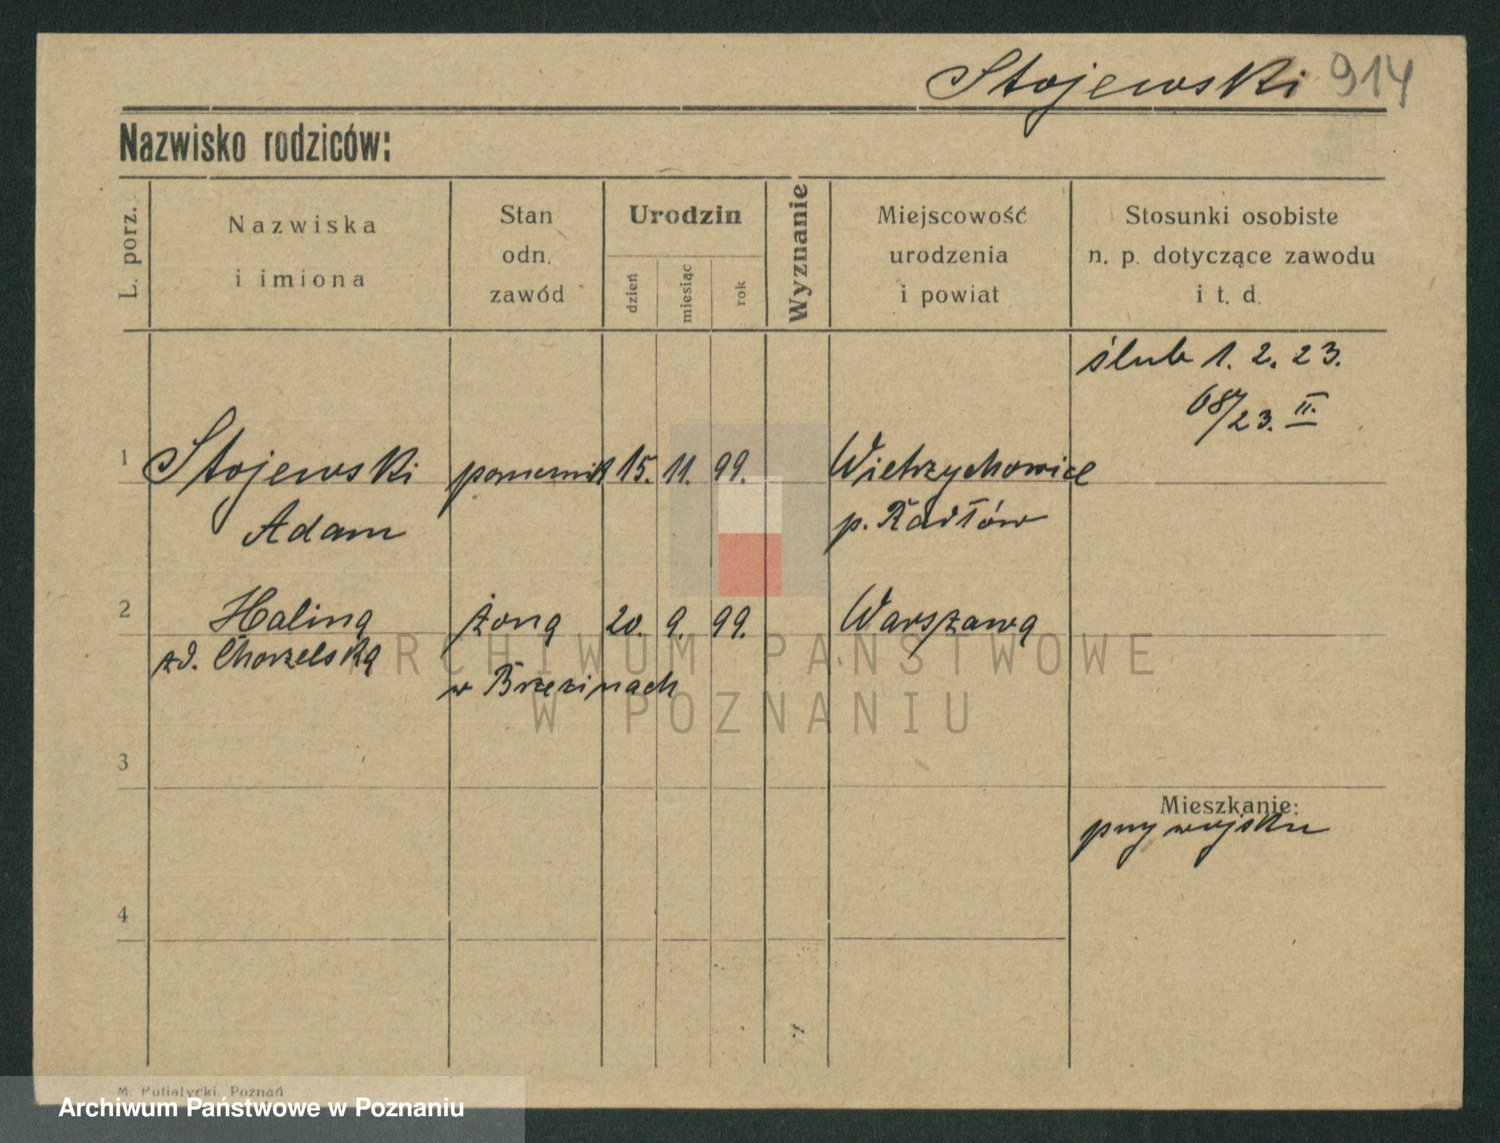 Stojewski 914
Nazwisko rodziców:
L. porz.
Nazwiska
i imiona
Stan
odn.
zawód
Urodzin
dzień
miesiąc
rok
Wyznanie
Miejscowość
urodzenia
i powiat
Stosunki osobiste
n. p. dotyczące zawodu
i t. d.
ślub 1. 2. 23.
68/23. II.
1 Stojewski 15. 11. 99. Wietrzychowice
Adam p. Radłów
2 Halina żona 20. 9. 99. Warszawa
zd. Chorzelska
w Brzezinach
ARCHIWUM PAŃSTWOWE
W POZNANIU
3
Mieszkanie:
przy wojsku
4
M. Putiatycki, Poznań
Archiwum Państwowe w Poznaniu